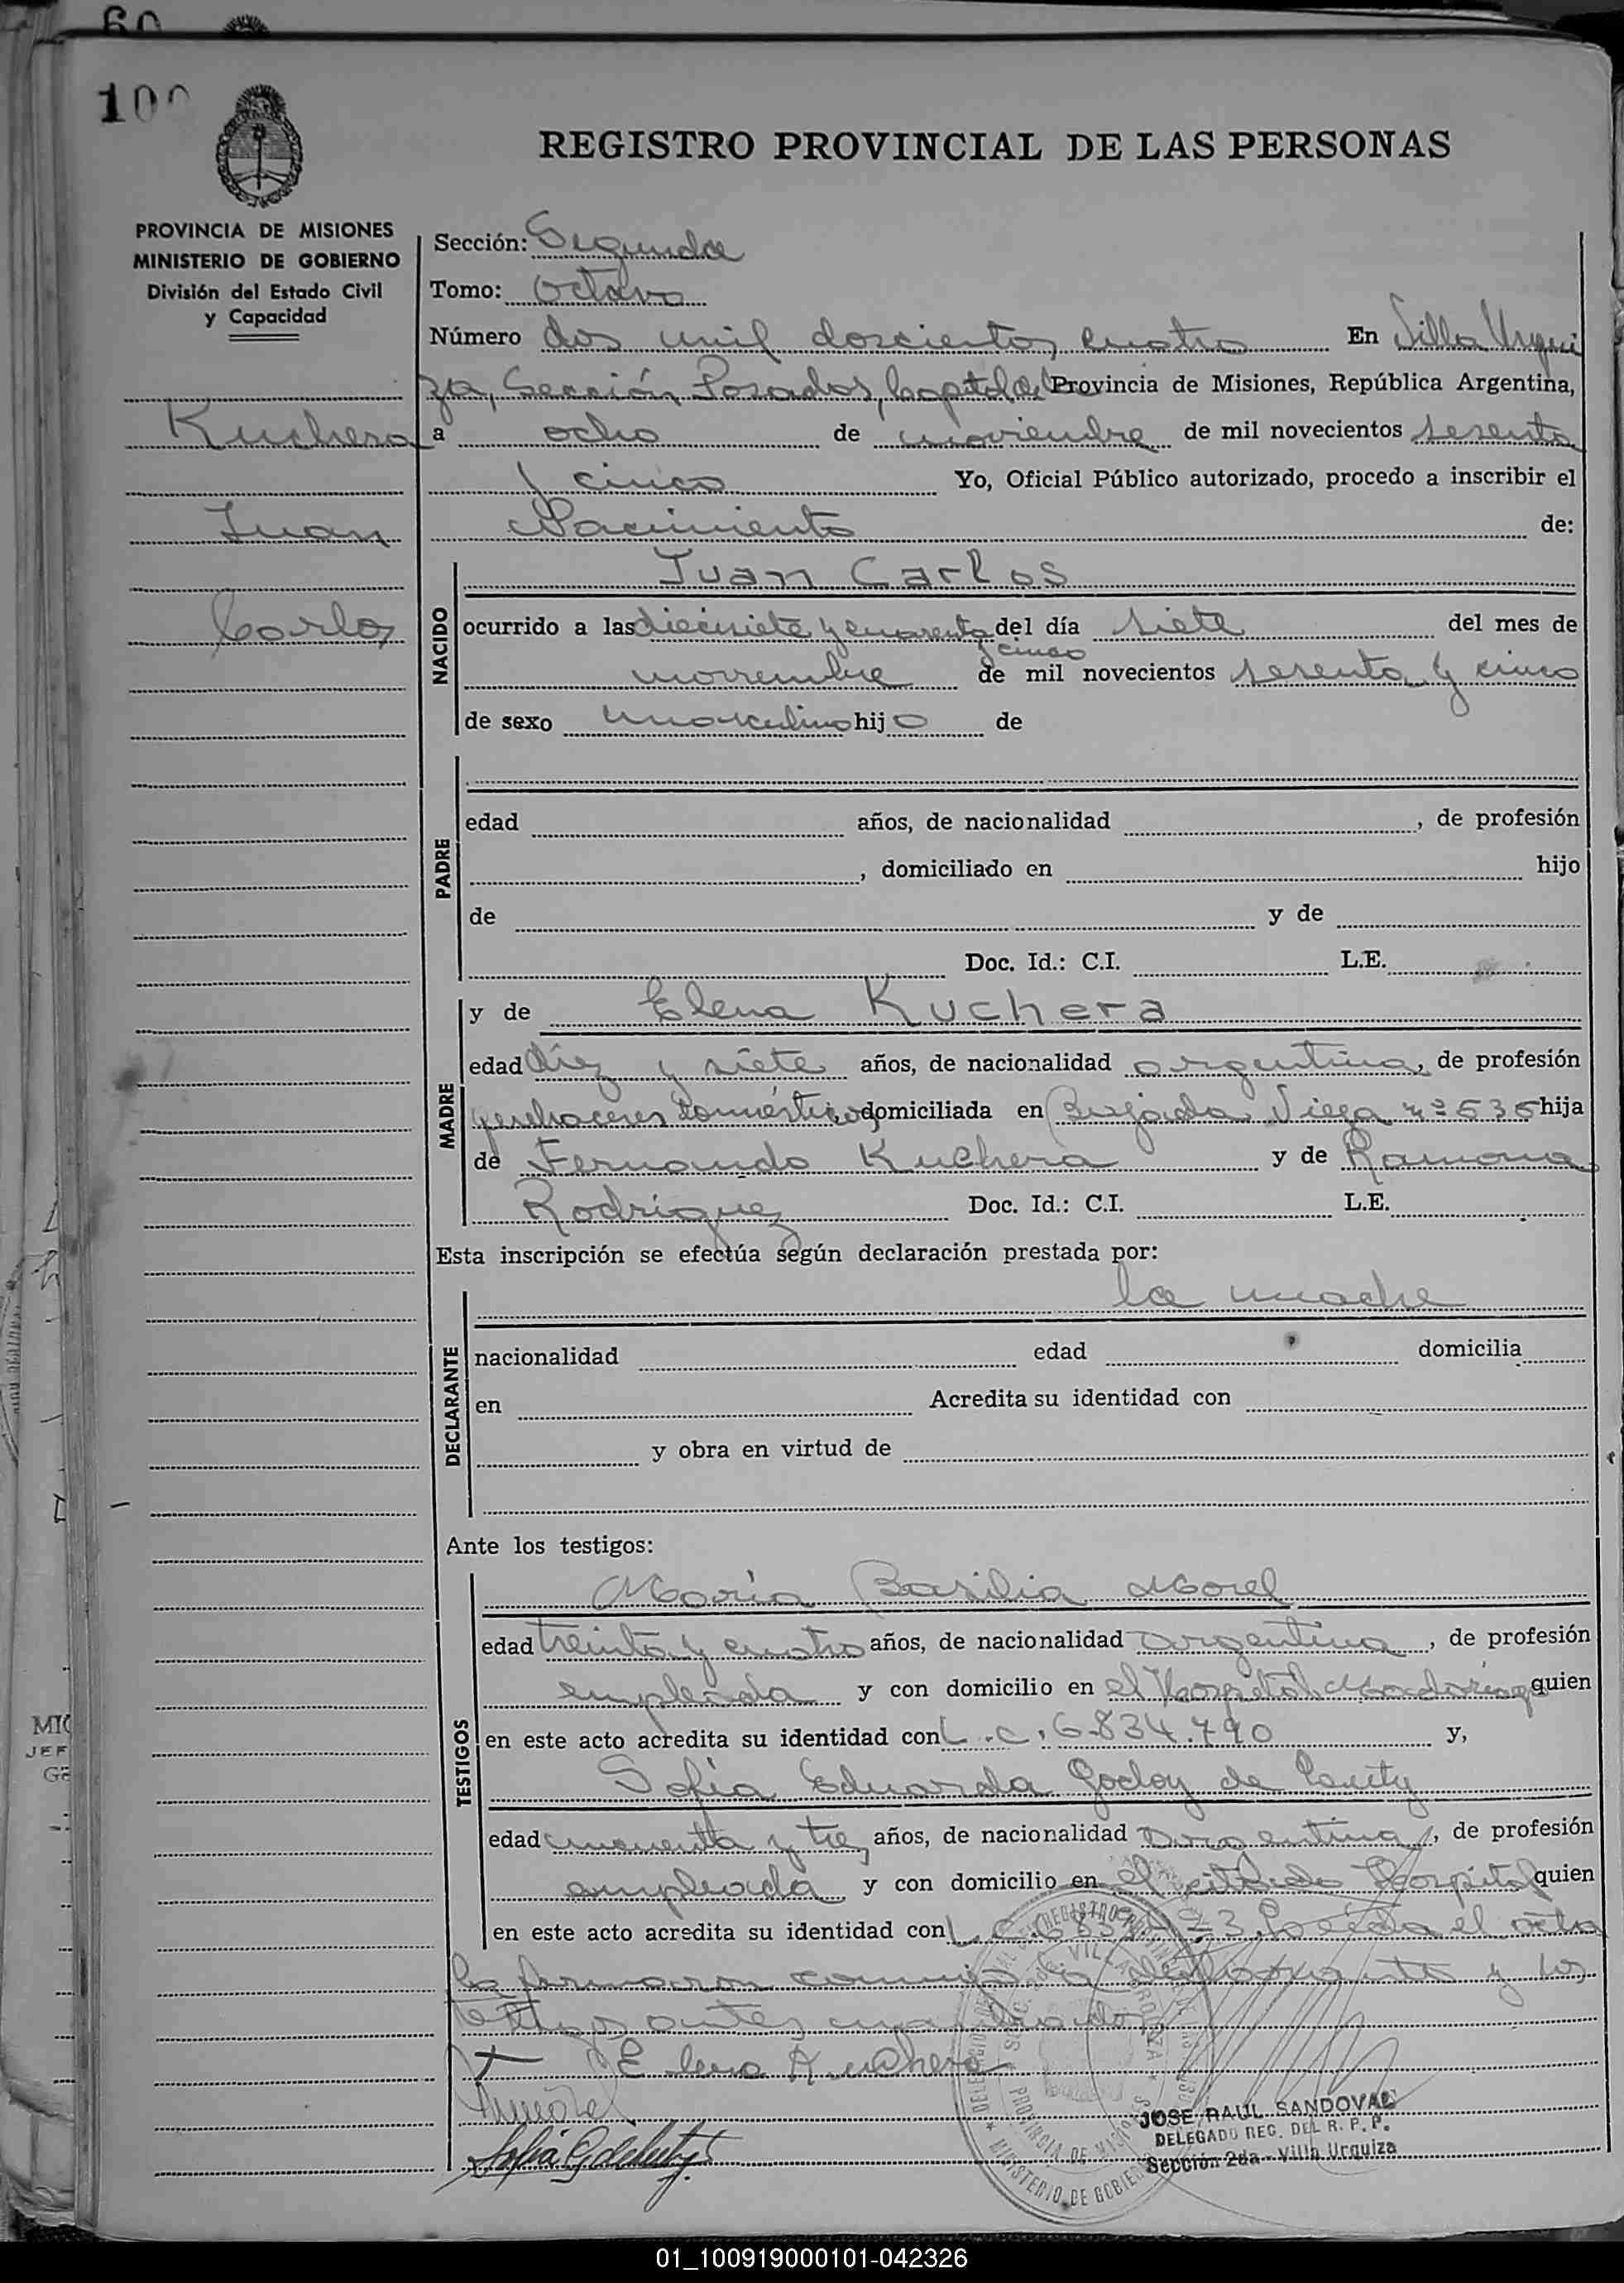 60
100
REGISTRO PROVINCIAL DE LAS PERSONAS
PROVINCIA DE MISIONES
MINISTERIO DE GOBIERNO
División del Estado Civil
y Capacidad
Kuchera
Juan
Carlos
Sección: Segunda
Tomo: Octavo
Número dos mil doscientos cuatro En Villa Urqui
za, Sección Posadas, Capital de la Provincia de Misiones, República Argentina,
a ocho de noviembre de mil novecientos sesenta
y cinco Yo, Oficial Público autorizado, procedo a inscribir el
Nacimiento de:
NACIDO
Juan Carlos
ocurrido a las diecisiete y cuarenta del día siete del mes de
y cinco
noviembre de mil novecientos sesenta y cinco
de sexo masculino hijo de
PADRE
edad años, de nacionalidad , de profesión
, domiciliado en hijo
de y de
Doc. Id.: C.I. L.E.
MADRE
y de Elena Kuchera
edad diez y siete años, de nacionalidad argentina, de profesión
quehaceres domésticos domiciliada en Bajada Vieja nº 535 hija
de Fernando Kuchera y de Ramona
Rodriguez Doc. Id.: C.I. L.E.
Esta inscripción se efectúa según declaración prestada por:
DECLARANTE
la madre
nacionalidad edad domicilia
en Acredita su identidad con
y obra en virtud de
Ante los testigos:
TESTIGOS
María Basilia Morel
edad treinta y cuatro años, de nacionalidad argentina, de profesión
empleada y con domicilio en el Hospital Madariaga quien
en este acto acredita su identidad con L.C. 6834.790 y,
Sofía Eduarda Godoy de
edad cincuenta y tres años, de nacionalidad argentina, de profesión
empleada y con domicilio en el citado Hospital quien
en este acto acredita su identidad con L.C. Leída el acta
la firmaron conmigo la declarante y los
testigos antes mencionados
Elena Kuchera
JOSE RAUL SANDOVAL
DELEGADO REG. DEL R. P. P.
Sección 2da - Villa Urquiza
MINISTERIO DE GOBIERNO
PROVINCIA DE MISIONES
01_100919000101-042326